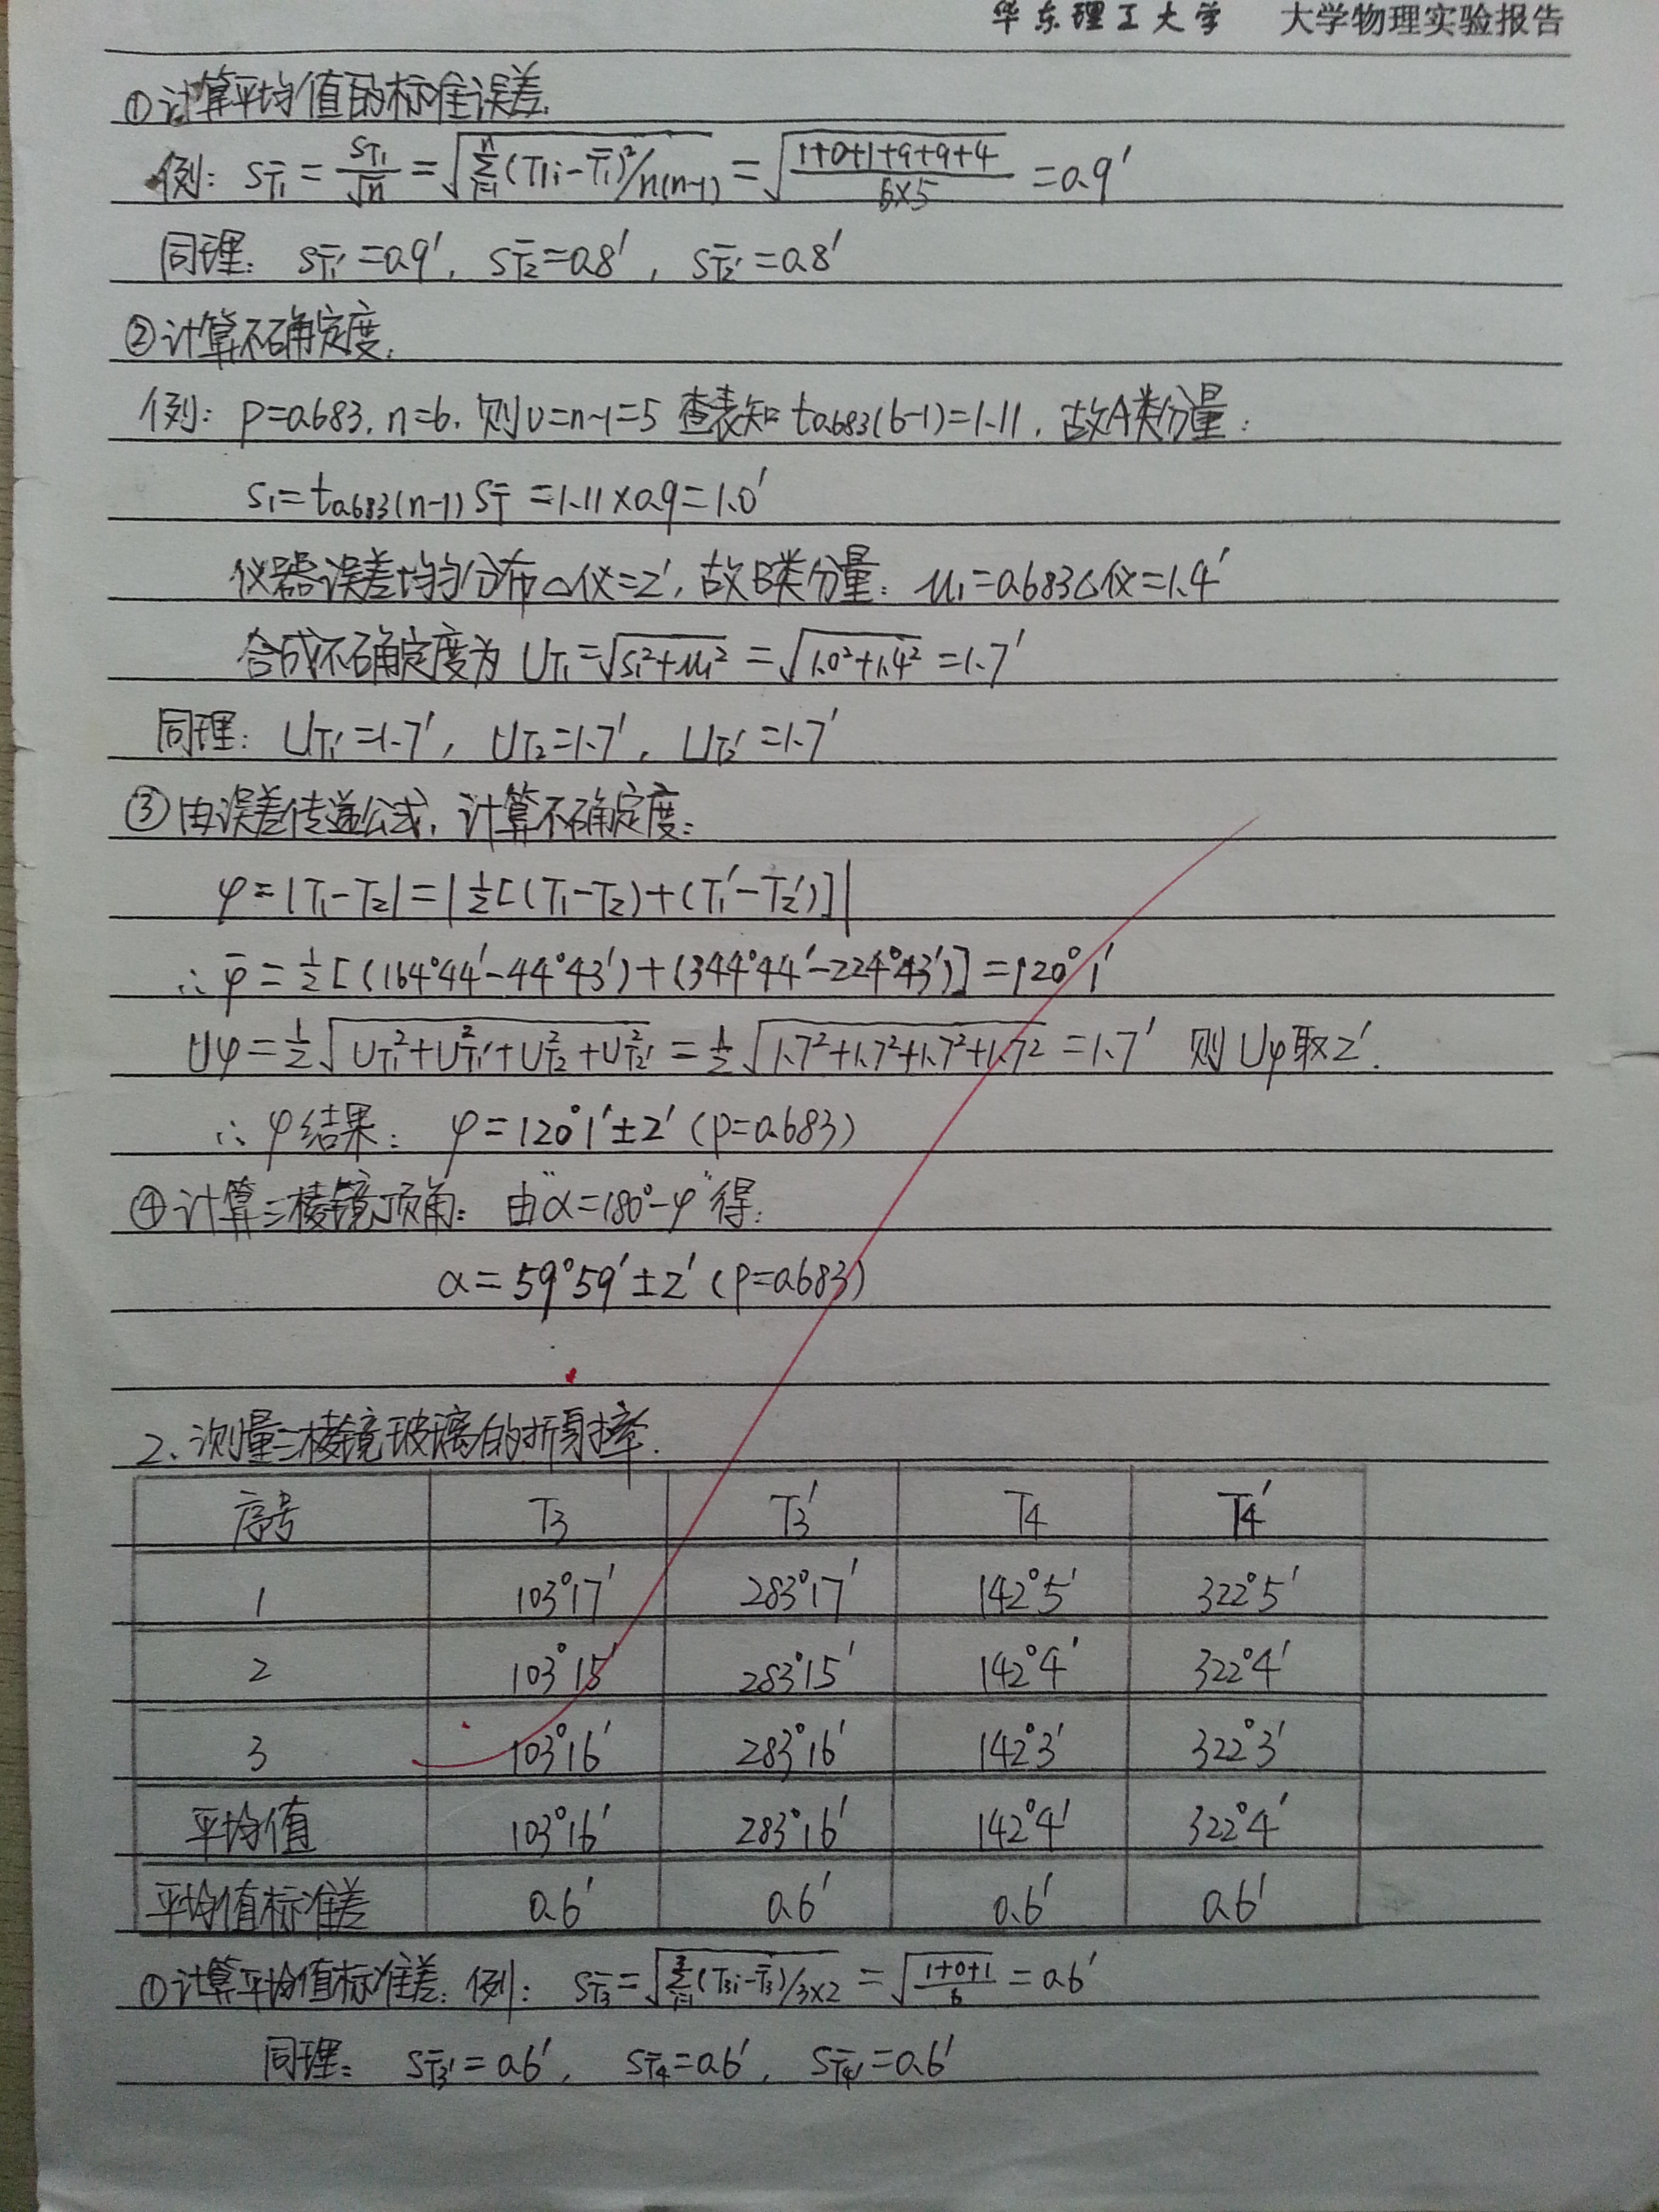 华东理工大学 大学物理实验报告
①计算平均值的标准误差.
例: S_T̄₁ = S_T₁/√n = √(Σ_{i=1}^{n}(T₁ᵢ-T̄₁)²/n(n-1)) = √((1+0+1+9+9+4)/(6×5)) = 0.9′
同理: S_T̄₁′=0.9′, S_T̄₂=0.8′, S_T̄₂′=0.8′
②计算不确定度.
例: P=0.683, n=6. 则υ=n-1=5 查表知 t₀.₆₈₃(6-1)=1.11, 故A类分量:
S₁=t₀.₆₈₃(n-1)S_T̄=1.11×0.9=1.0′
仪器误差均匀分布△仪=2′, 故B类分量: u₁=0.683△仪=1.4′
合成不确定度为 U_T₁=√(S₁²+u₁²)=√(1.0²+1.4²)=1.7′
同理: U_T₁′=1.7′, U_T₂=1.7′, U_T₂′=1.7′
③由误差传递公式, 计算不确定度:
φ=|T₁-T₂|=|½[(T₁-T₂)+(T₁′-T₂′)]|
∴φ̄=½[(164°44′-44°43′)+(344°44′-224°43′)]=120°1′
Uφ=½√(U_T₁²+U_T₁′²+U_T₂²+U_T₂′²)=½√(1.7²+1.7²+1.7²+1.7²)=1.7′ 则Uφ取2′.
∴φ结果: φ=120°1′±2′(P=0.683)
④计算三棱镜顶角: 由"α=180°-φ"得:
α=59°59′±2′(P=0.683)
2、测量三棱镜玻璃的折射率.
序号 T₃ T₃′ T₄ T₄′
1 103°17′ 283°17′ 142°5′ 322°5′
2 103°15′ 283°15′ 142°4′ 322°4′
3 103°16′ 283°16′ 142°3′ 322°3′
平均值 103°16′ 283°16′ 142°4′ 322°4′
平均值标准差 0.6′ 0.6′ 0.6′ 0.6′
①计算平均值标准差: 例: S_T̄₃=√(Σ_{i=1}^{3}(T₃ᵢ-T̄₃)/3×2)=√((1+0+1)/6)=0.6′
同理: S_T̄₃′=0.6′, S_T̄₄=0.6′, S_T̄₄′=0.6′